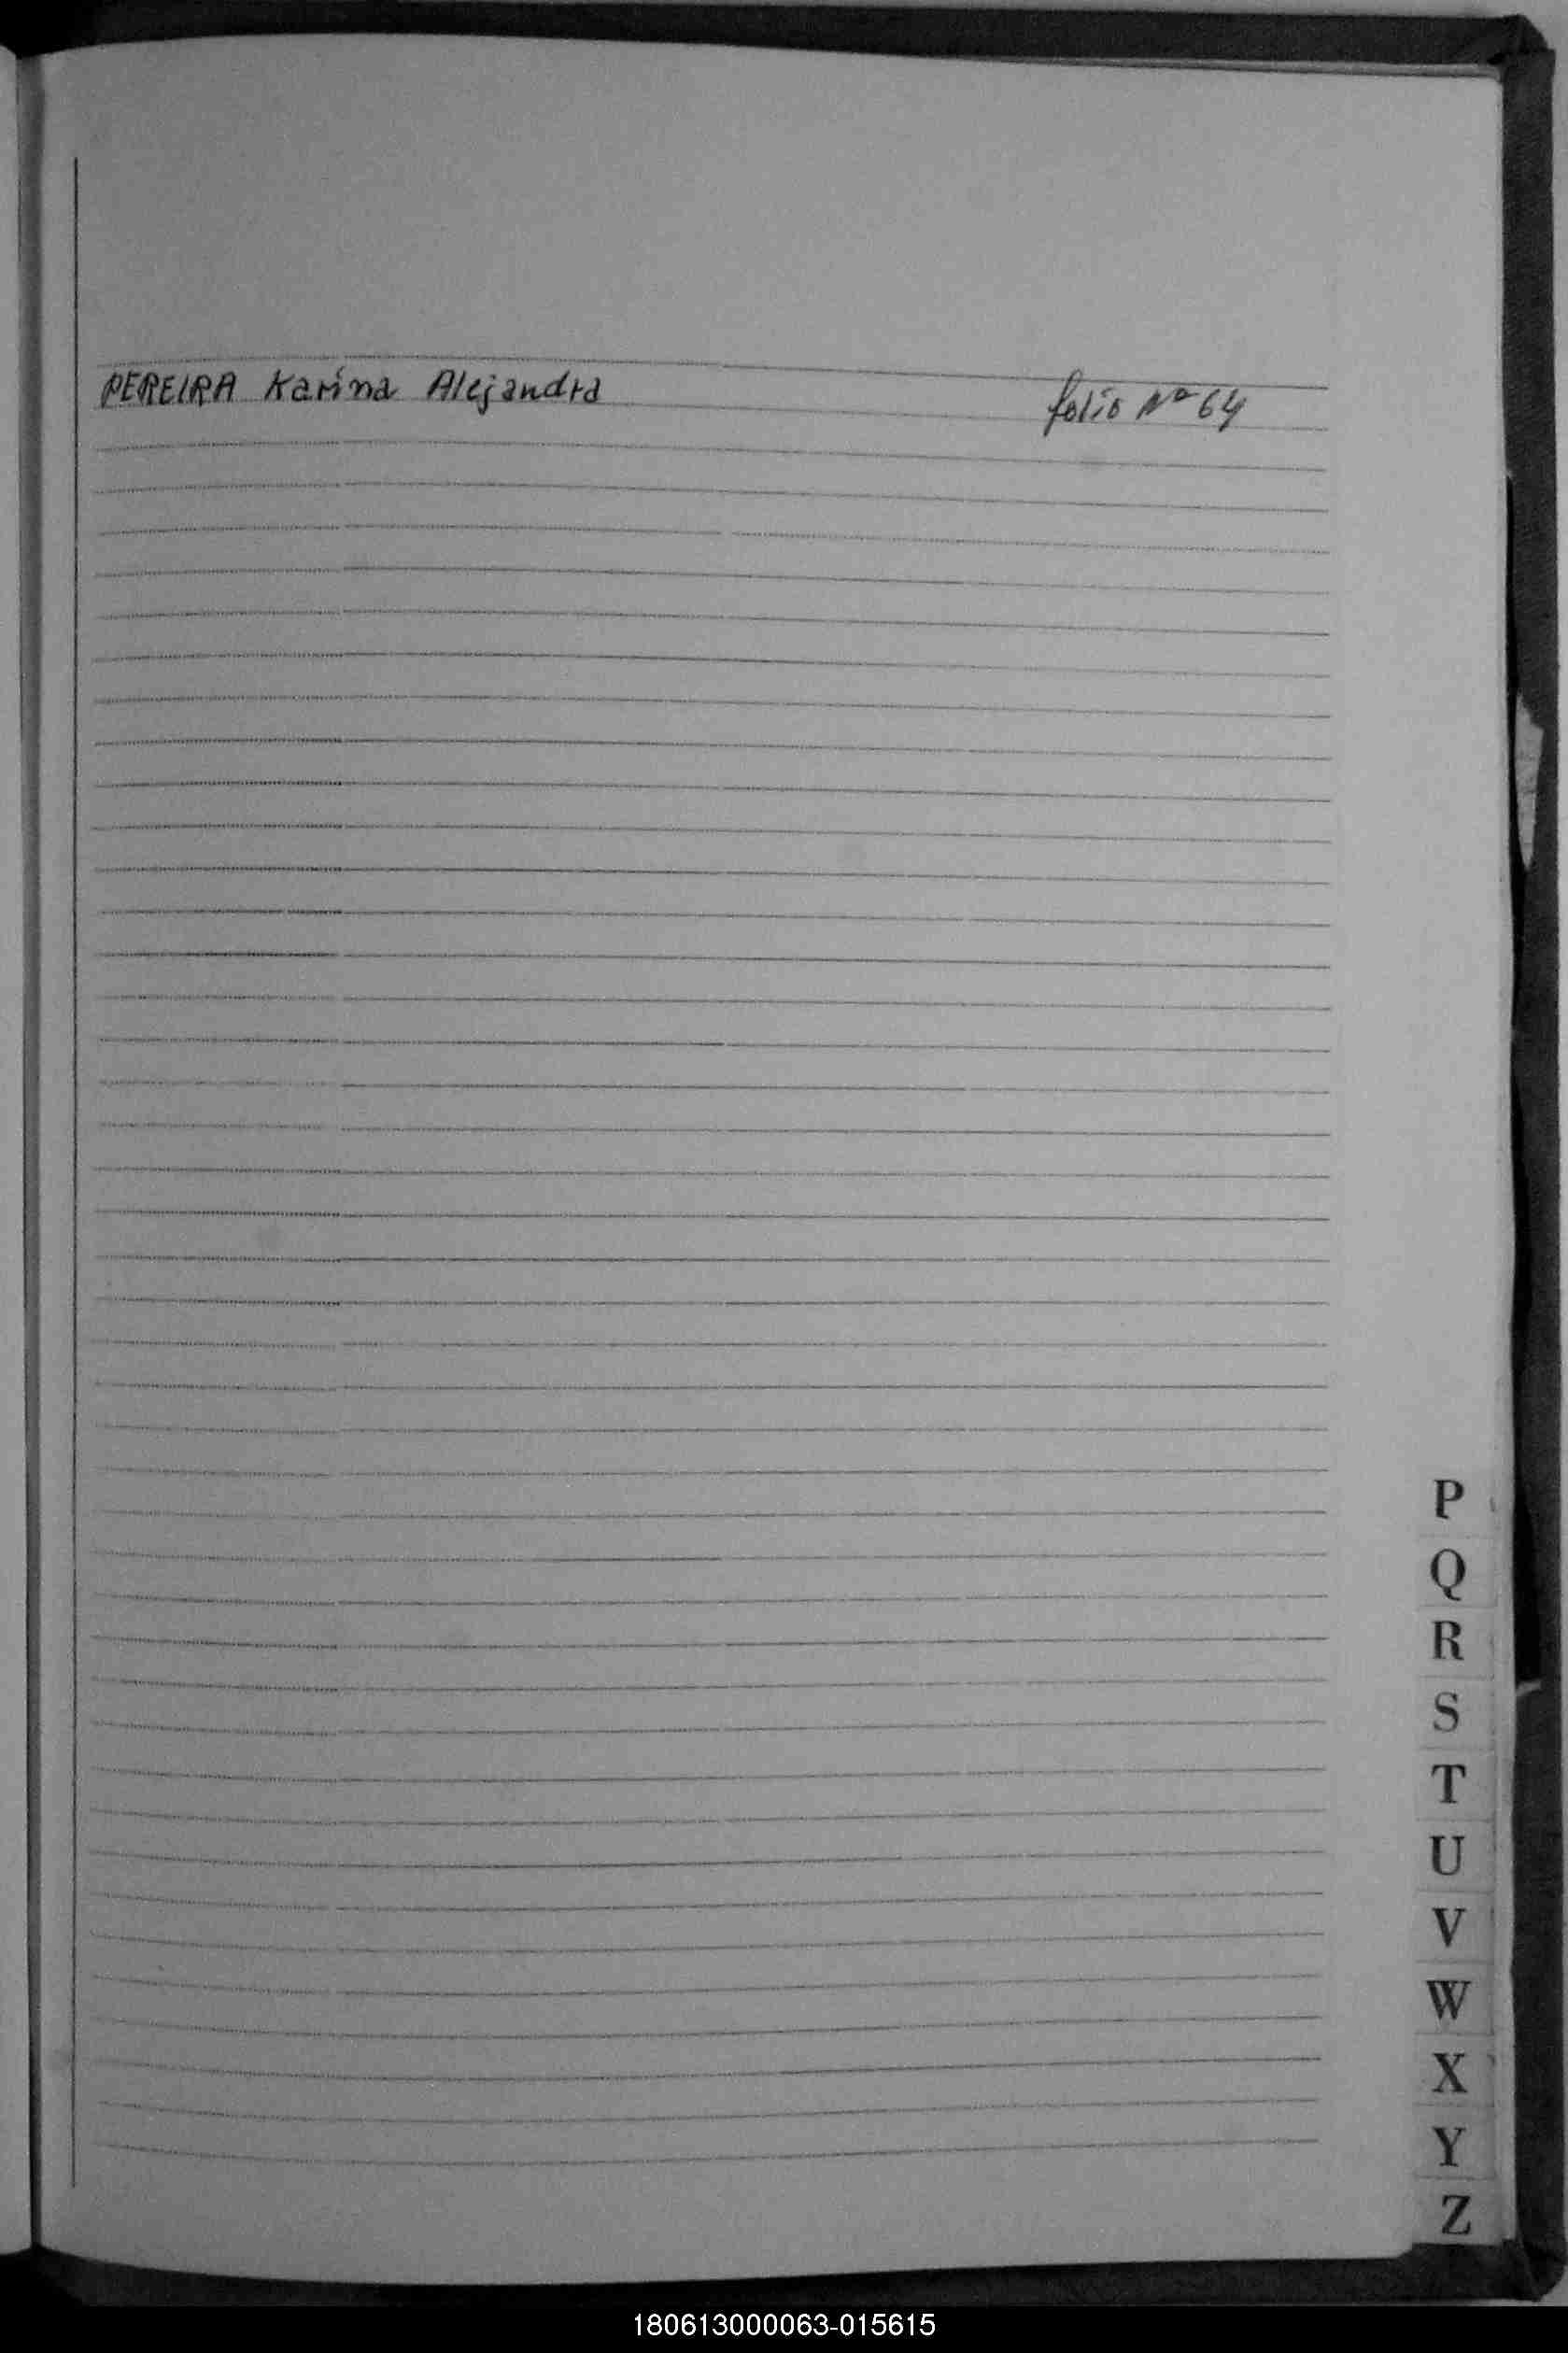 PEREIRA Karina Alejandra folio Nº 64
P
Q
R
S
T
U
V
W
X
Y
Z
180613000063-015615